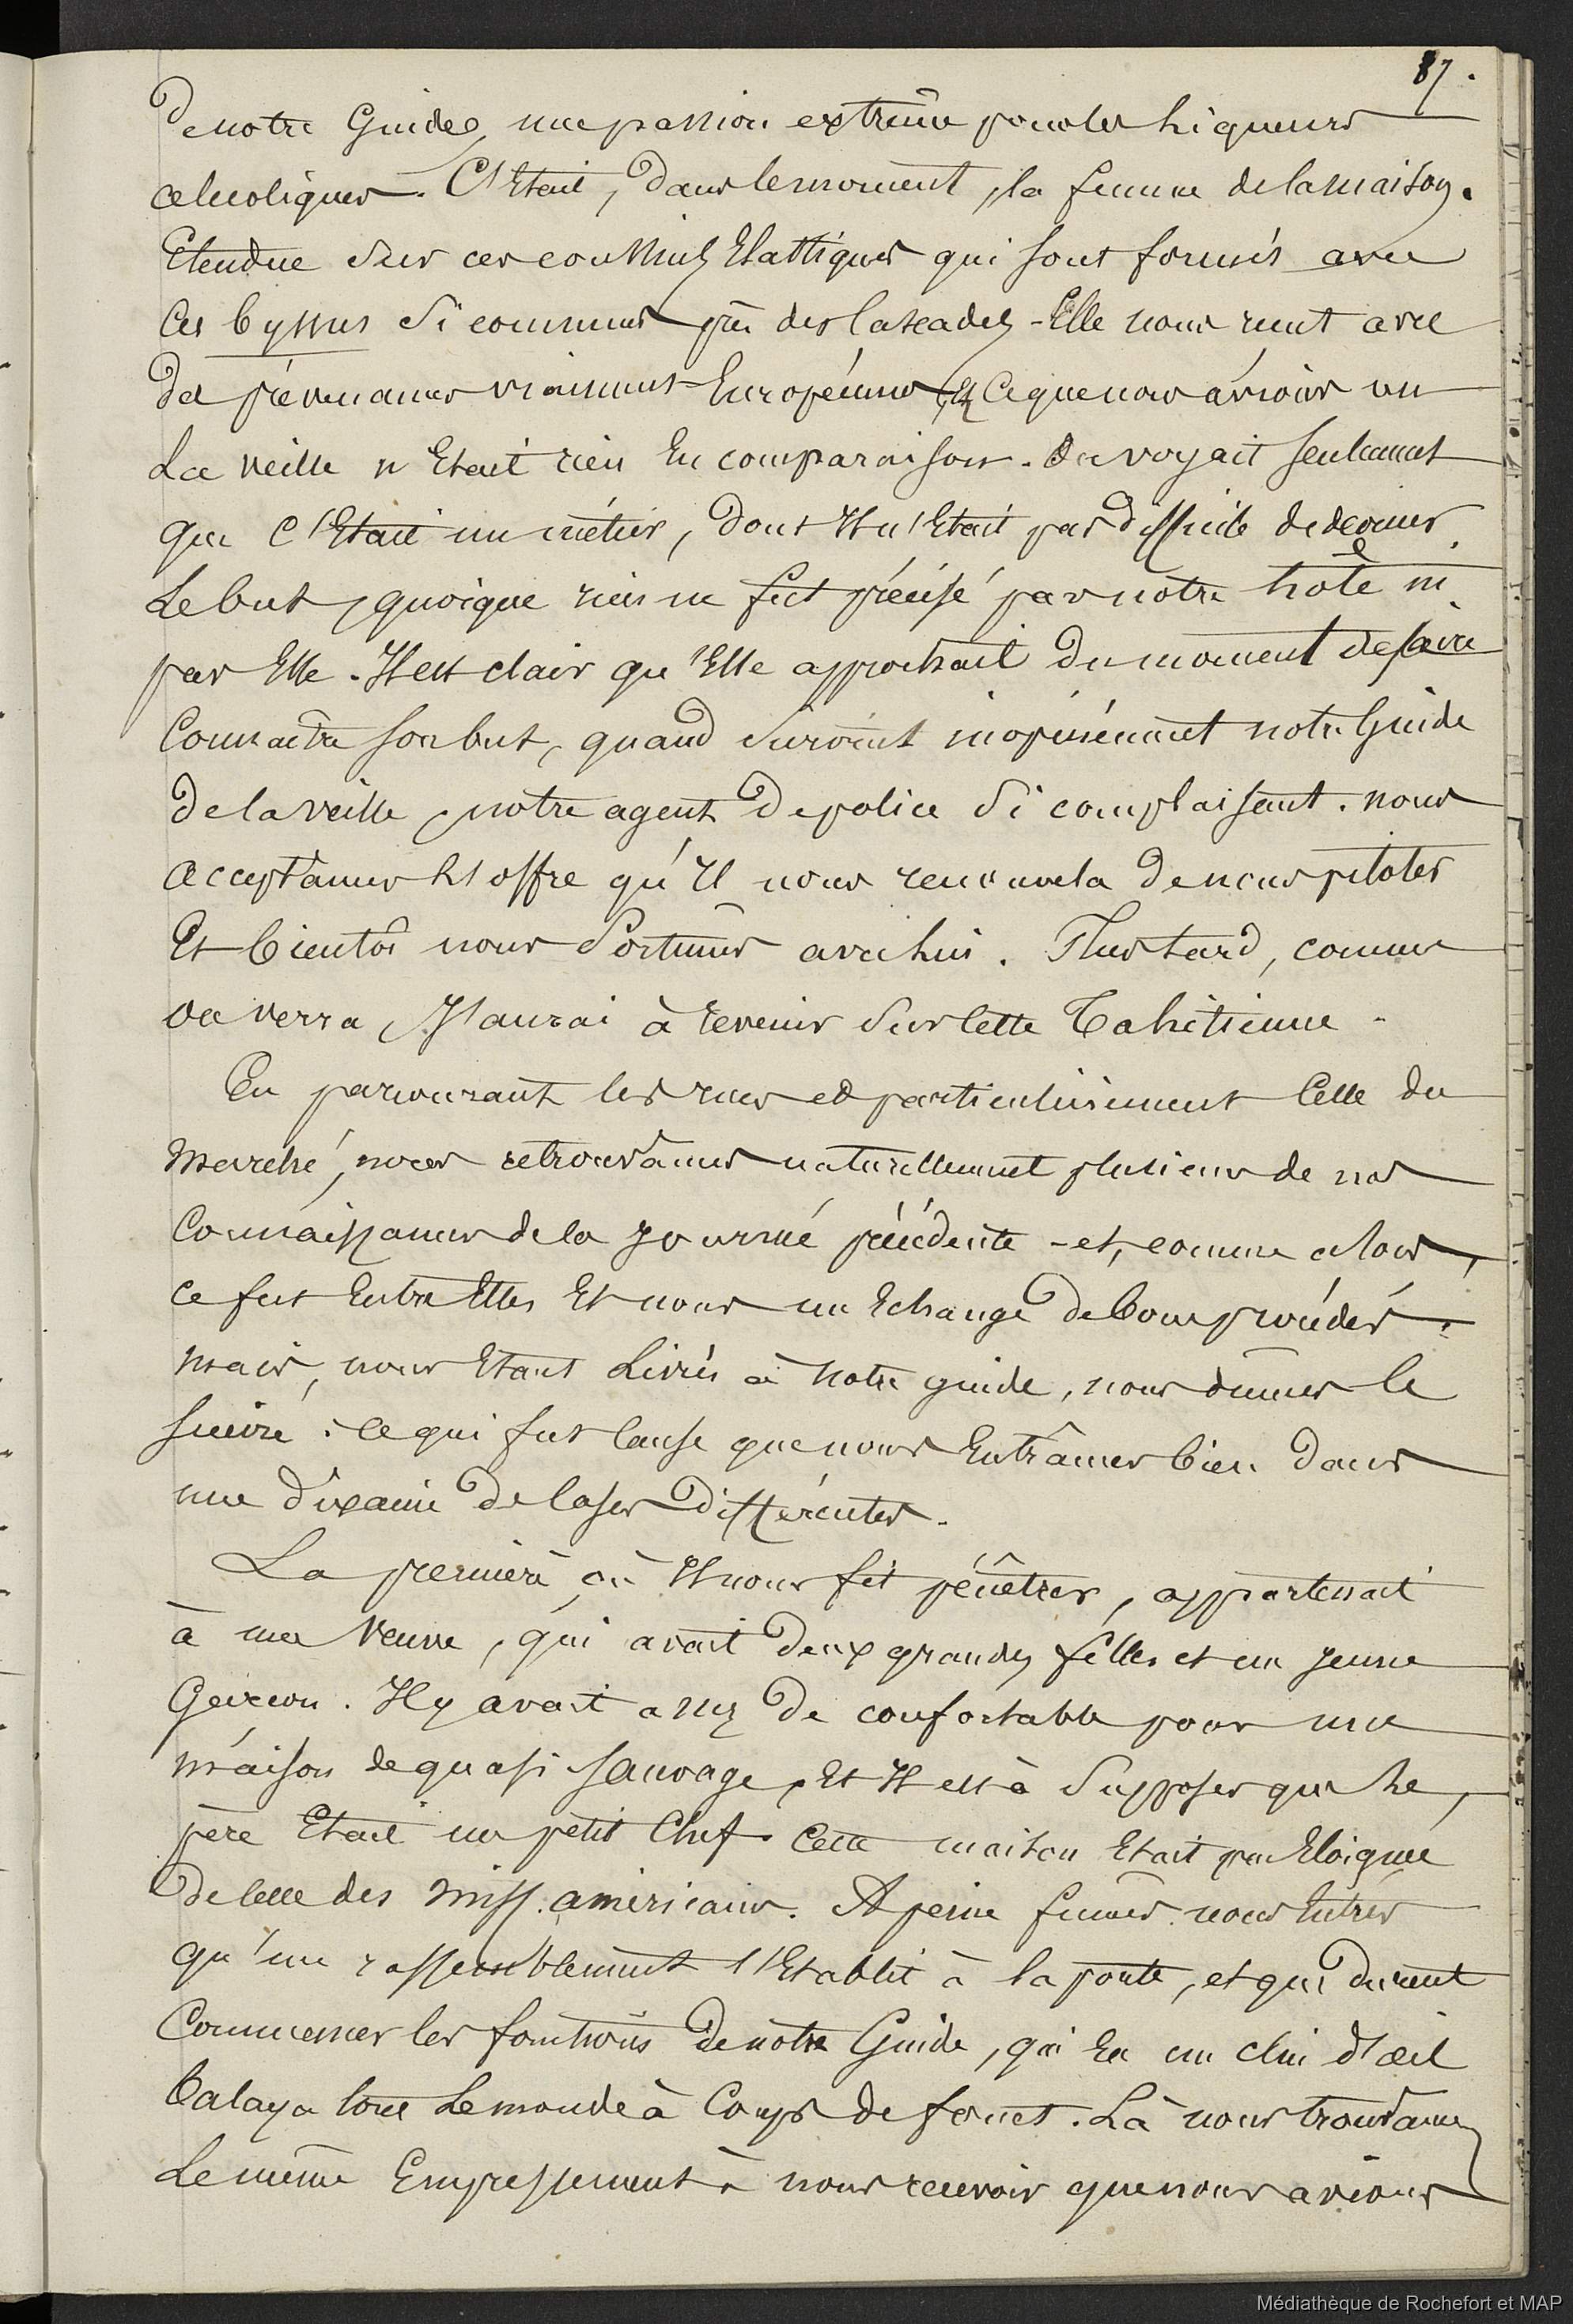 87.
de notre Guide, une passion extrême pour les liqueurs
alcooliques. C'était, dans le moment, la femme de la maison.
Etendue sur ces coussins Elastiques qui sont formés avec
ces byssus si communs près des Cascades - Elle nous reçut avec
des prévenances vraiment Européennes, & ce que nous avions vu
La veille n'Etait rien En comparaison. On voyait seulement
que C'Etait un métier, dont Il n'Etait pas difficile de deviner
Le but, quoique rien ne fut précisé par notre hôte ni
par Elle. Il est clair qu'Elle approchait du moment de faire
Connaître son but, quand survint inopinément notre Guide
de la veille, notre agent de police si complaisant. nous
acceptâmes L'offre qu'Il nous renouvela de nous piloter
Et bientôt nous Sortimes avec lui. Plus tard, comme
on verra, J'aurai à revenir sur Cette Tahitienne.
En parcourant les rues et particulièrement Celle du
Marché, nous retrouvâmes naturellement plusieurs de nos
Connaissances de la journée précédente - et, comme alors,
ce fut Entre Elles Et nous un Echange de bons procédés.
mais, nous Etant Livrés à notre guide, nous dûmes le
suivre : ce qui fut Cause que nous Entrâmes bien dans
une dixaine de Cases différentes.
La première où Il nous fit pénêtrer, appartenait
à une Veuve, qui avait deux grandes filles et un jeune
Garçon. Il y avait assez de confortable pour une
maison de quasi sauvage, Et Il est à Supposer que Le
père Etait un petit Chef. Cette maison Etait peu Eloignée
de Celle des Miss. américains. A peine fumes nous Entrés
qu'un rassemblement s'Etablit à la porte, et que durent
Commencer les fonctions de notre Guide, qui En un clin d'œil
balaya tout Le monde à Coups de fouet. Là nous trouvâmes
Le même Empressement à nous recevoir que nous avions
Médiathèque de Rochefort et MAP